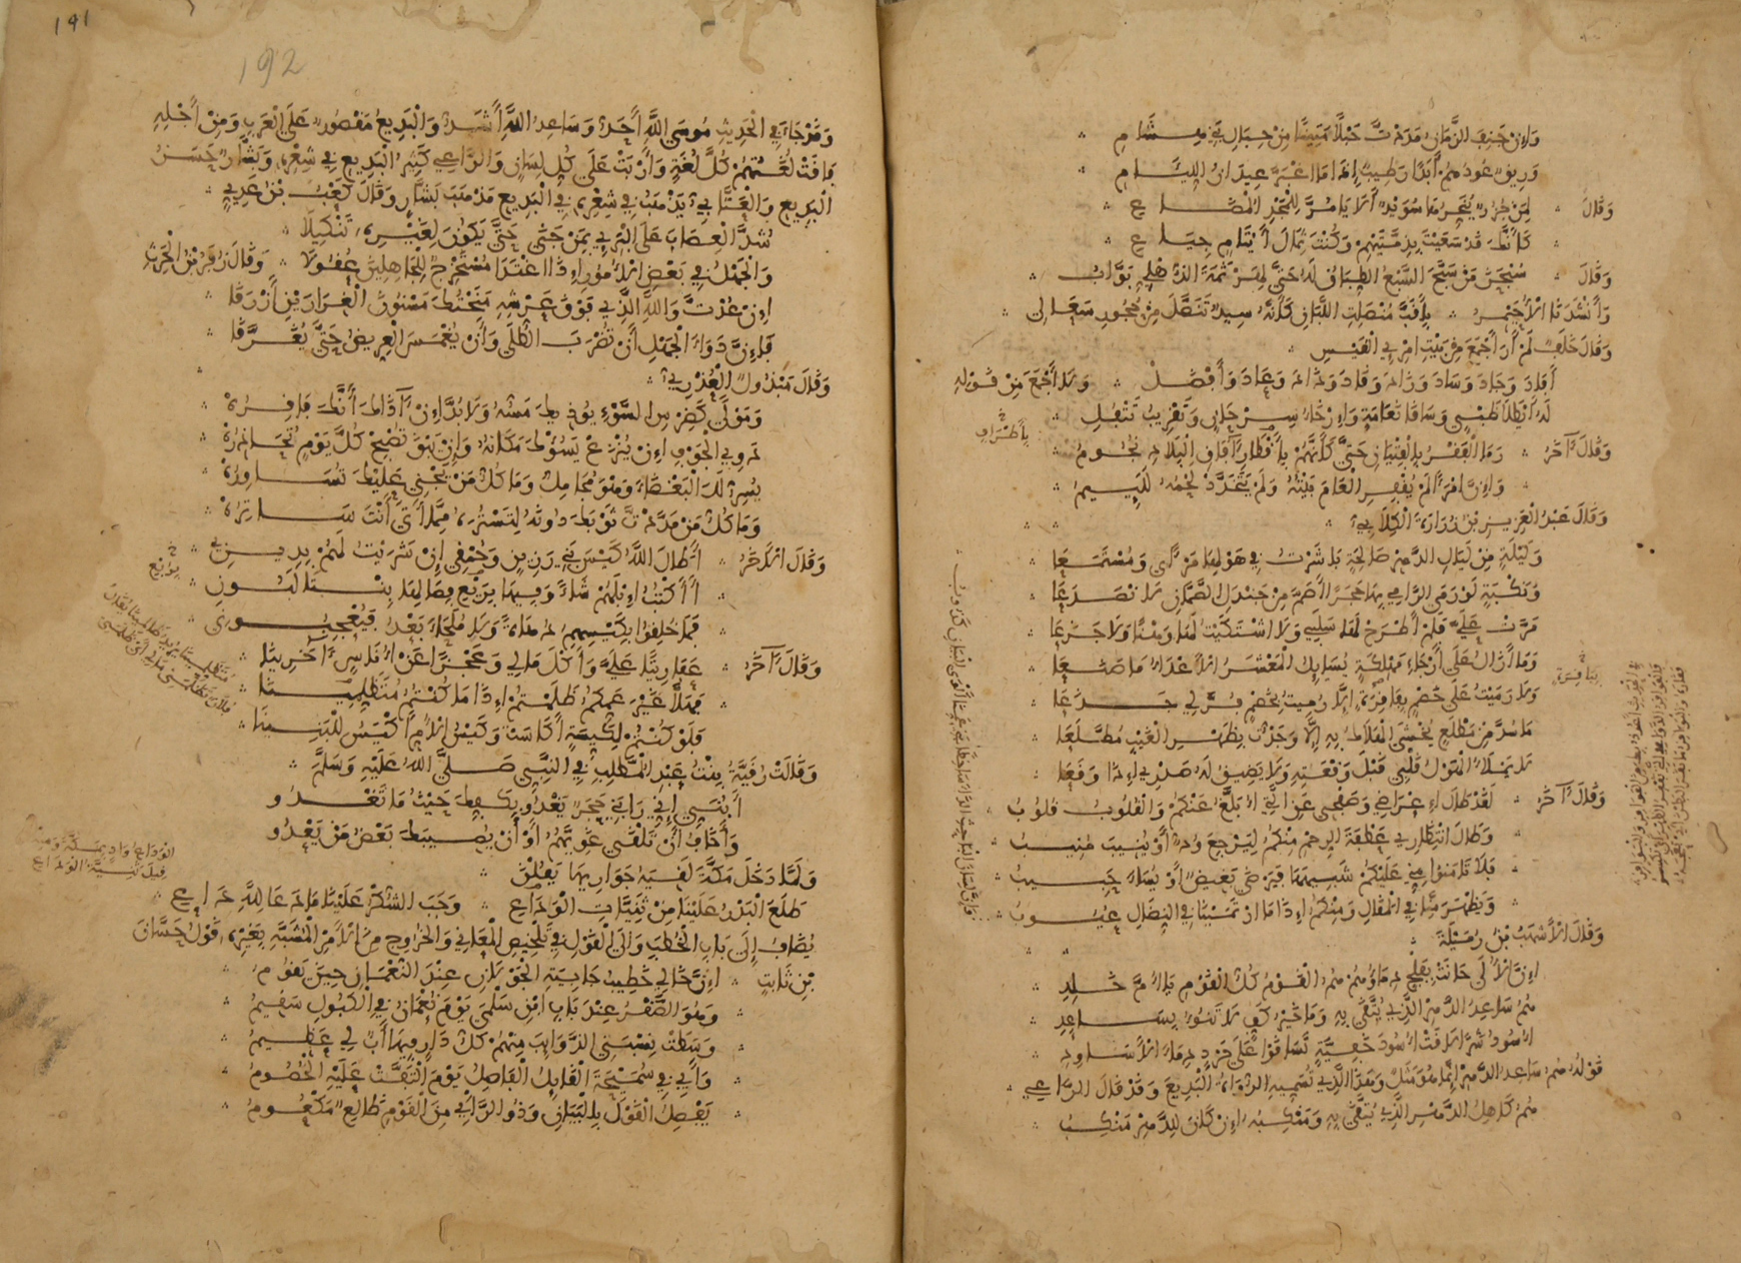 وَإِنْ حَنِفَ الزَّمَانُ مَدَدْتُ حَبْلًا مَتِينًا مِنْ حِبَالِ بَنِي هِشَامِ
وَرِيقٌ عُودُهُمْ أَبَدًا رَطِيبٌ إِذَا مَا اغْبَرَّ عِيدَانُ اللِّئَامِ
وَقَالَ لِمَنْ جُزُرٌ يُنَحِّرُهَا سُوَيْدٌ أَلَا يَا مُرَّ لِلْمَجْدِ الْمُضَاعِ
كَأَنَّكَ قَدْ سَعَيْتَ بِذِمَّتَيْهِمْ وَكُنْتَ ثِمَالَ أَيْتَامٍ جِيَاعِ
وَقَالَ مَنْ سَبَّحَ السَّبْعُ الطِّبَاقُ لَهُ حَتَّى لِهَرْثَمَةَ الذُّهْلِيِّ بَوَّابُ
وَأَنْشَدَنَا الْأُحَيْمِرُ بِأَقَبَّ مُنْصَلِتِ اللَّبَانِ كَأَنَّهُ سِيدٌ تَنَصَّلَ مِنْ حُجُورِ سَعَالِي
وَقَالَ خَلَفٌ لَمْ أَرَ أَجْمَعَ مِنْ بَيْتِ امْرِئِ الْقَيْسِ
أَفَادَ وَجَادَ وَسَادَ وَزَادَ وَقَادَ وَذَادَ وَعَادَ وَأَفْضَلْ وَلَا أَجْمَعَ مِنْ قَوْلِهِ
لَهُ أَيْطَلَا ظَبْيٍ وَسَاقَا نَعَامَةٍ وَإِرْخَاءُ سِرْحَانٍ وَتَقْرِيبُ تَتْفُلِ
وَقَالَ آخَرُ رَمَى الْفَقْرُ بِالْفِتْيَانِ حَتَّى كَأَنَّهُمْ بِأَقْطَارِ آفَاقِ الْبِلَادِ نُجُومُ
بِأَطْرَافِ
وَإِنَّ امْرَأً لَمْ يُفْقِرِ الْعَامَ بَيْتُهُ وَلَمْ يَتَخَدَّدْ لَحْمُهُ لَلَئِيمُ
وَقَالَ عَبْدُ الْعَزِيزِ بْنُ زُرَارَةَ الْكِلَابِيُّ
وَلَيْلَةٍ مِنْ لَيَالِي الدَّهْرِ صَالِحَةٍ بَاشَرْتُ فِي هَوْلِهَا مَرْأًى وَمُسْتَمَعَا
وَنَكْبَةٍ لَوْ رَمَى الرَّامِي بِهَا حَجَرًا أَصَمَّ مِنْ جَنْدَلِ الصَّمَّانِ لَانْصَدَعَا
مَرَّتْ عَلَيَّ فَلَمْ أَطْرَحْ لَهَا سَلَبِي وَلَا اشْتَكَيْتُ لَهَا وَهْنًا وَلَا جَزَعَا
وَمَا أَزَالُ عَلَى أَرْجَاءِ مَهْلَكَةٍ يُسَائِلُ الْمَعْشَرُ الْأَعْدَاءُ مَا صَنَعَا
وَلَا رَمَيْتُ عَلَى خَصْمٍ بِفَاقِرَةٍ إِلَّا رُمِيتُ بِخَصْمٍ فُرَّ لِي جَذَعَا
مَا سُدَّ مِنْ مَطْلَعٍ يُخْشَى الْهَلَاكُ بِهِ إِلَّا وَجَدْتُ بِظَهْرِ الْغَيْبِ مُطَّلَعَا
لَا يَمْلَأُ الْهَوْلُ قَلْبِي قَبْلَ وَقْعَتِهِ وَلَا يَضِيقُ لَهُ صَدْرِي إِذَا وَقَعَا
وَقَالَ آخَرُ لَقَدْ طَالَ إِعْرَاضِي وَصَفْحِي عَنِ الَّتِي أُبَلَّغُ عَنْكُمْ وَالْقُلُوبُ قُلُوبُ
وَطَالَ انْتِظَارِي عَطْفَةَ الرِّحْمِ مِنْكُمُ لِيَرْجِعَ وُدٌّ أَوْ يُنِيبَ مُنِيبُ
فَلَا تَأْمَنُوا مِنِّي عَلَيْكُمْ شَبِيهَهَا فَيَرْضَى بَغِيضٌ أَوْ يُسَاءَ حَبِيبُ
وَيَظْهَرَ مِنَّا فِي الْمَقَالِ وَمِنْكُمُ إِذَا مَا ارْتَمَيْنَا فِي النِّضَالِ عُيُوبُ
وَقَالَ الْأَشْهَبُ بْنُ رُمَيْلَةَ
إِنَّ الْأُلَى حَانَتْ بِفَلْجٍ دِمَاؤُهُمْ هُمُ الْقَوْمُ كُلُّ الْقَوْمِ يَا أُمَّ خَالِدِ
هُمُ سَاعِدُ الدَّهْرِ الَّذِي يُتَّقَى بِهِ وَمَا خَيْرُ كَفٍّ لَا تَنُوءُ بِسَاعِدِ
أُسُودُ شَرًى لَاقَتْ أُسُودَ خَفِيَّةٍ تَسَاقَوْا عَلَى حَرْدٍ دِمَاءَ الْأَسَاوِدِ
قَوْلُهُ هُمُ سَاعِدُ الدَّهْرِ إِنَّمَا هُوَ مَثَلٌ وَهَذَا الَّذِي تُسَمِّيهِ الرُّوَاةُ الْبَدِيعَ وَقَدْ قَالَ الرَّاعِي
هُمُ كَاهِلُ الدَّهْرِ الَّذِي يُتَّقَى بِهِ وَمَنْكِبُهُ إِنْ كَانَ لِلدَّهْرِ مَنْكِبُ
١٩١
192
وَقَدْ جَاءَ فِي الْحَدِيثِ مُوسَى اللَّهِ أَحَدُّ وَسَاعِدُ اللَّهِ أَشَدُّ وَالْبَدِيعُ مَقْصُورٌ عَلَى الْعَرَبِ وَمِنْ أَجْلِهِ
فَاقَتْ لُغَتُهُمْ كُلَّ لُغَةٍ وَأَرْبَتْ عَلَى كُلِّ لِسَانٍ وَالرَّاعِي كَثِيرُ الْبَدِيعِ فِي شِعْرِهِ وَبَشَّارٌ حَسَنُ
الْبَدِيعِ وَالْعَتَّابِيُّ يَذْهَبُ فِي شِعْرِهِ فِي الْبَدِيعِ مَذْهَبَ بَشَّارٍ وَقَالَ كَعْبُ بْنُ عَدِيٍّ
شُدَّ الْعِصَابَ عَلَى الْبَرِيءِ بِمَنْ جَنَى حَتَّى يَكُونَ لِغَيْرِهِ تَنْكِيلَا
وَالْجَهْلُ فِي بَعْضِ الْأُمُورِ إِذَا اغْتَدَى مُسْتَخْرِجٌ لِلْجَاهِلِينَ عُقُولَا وَقَالَ زُفَرُ بْنُ الْحَرْثِ
إِنْ عُدْتَ وَاللَّهِ الَّذِي فَوْقَ عَرْشِهِ مَنَحْتُكَ مَسْنُونَ الْغِرَارَيْنِ أَزْرَقَا
فَإِنَّ دَوَاءَ الْجَهْلِ أَنْ تُضْرَبَ الطُّلَى وَأَنْ يُغْمَسَ الْعِرِّيضُ حَتَّى يُغَرَّقَا
وَقَالَ مَبْذُولٌ الْعُذْرِيُّ
وَمَوْلًى كَضِرْسِ السَّوْءِ يُؤْذِيكَ مَسُّهُ وَلَا بُدَّ إِنْ آذَاكَ أَنَّكَ فَاقِرُهْ
دَوِيِّ الْجَوْفِ إِنْ يُنْزَعْ يَسُؤْكَ مَكَانُهُ وَإِنْ يَبْقَ تُصْبِحْ كُلَّ يَوْمٍ تُحَاذِرُهْ
يُسِرُّ لَكَ الْبَغْضَاءَ وَهْوَ مُجَامِلٌ وَمَا كُلُّ مَنْ يَجْنِي عَلَيْكَ تُسَاوِرُهْ
وَمَا كُلُّ مَنْ مَدَدْتَ ثَوْبَكَ دُونَهُ لِتَسْتُرَهُ مِمَّا أَتَى أَنْتَ سَاتِرُهْ
وَقَالَ الْآخَرُ أَطَالَ اللَّهُ كَيْسَ بَنِي رَزِينٍ وَحُمْقِي إِنْ شَرَيْتُ لَهُمْ بِدِينِ
أَأَكْتُبُ إِبْلَهُمْ شَاءً وَفِيهَا بِرَيْعِ فِصَالِهَا بِنْتَا لَبُونِ
فَمَا خُلِقُوا بِكَيْسِهِمُ دُهَاةً وَلَا مُلْجَاءَ بَعْدُ فَيُعْجِبُونِي
وَقَالَ آخَرُ عَفَارِيتًا عَلَيَّ وَأَكْلَ مَالِي وَعَجْزًا عَنْ أُنَاسٍ آخَرِينَا
فَهَلَّا غَيْرَ عَمِّكُمُ ظَلَمْتُمْ إِذَا مَا كُنْتُمُ مُتَظَلِّمِينَا
فَلَوْ كُنْتُمْ لِكَيِّسَةٍ أَكَاسَتْ وَكَيْسُ الْأُمِّ أَكْيَسُ لِلْبَنِينَا
وَقَالَتْ رُقَيَّةُ بِنْتُ عَبْدِ الْمُطَّلِبِ فِي النَّبِيِّ صَلَّى اللَّهُ عَلَيْهِ وَسَلَّمَ
أَبُنَيَّ إِنِّي رَابَنِي حَجَرٌ يَغْدُو بِكَفِّكَ حَيْثُ مَا تَغْدُو
وَأَخَافُ أَنْ تَلْقَى غَوِيَّهُمُ أَوْ أَنْ يُصِيبَكَ بَعْضُ مَنْ يَعْدُو
وَلَمَّا دَخَلَ مَكَّةَ لَقِيَهُ جَوَارِيهَا يَقُلْنَ
طَلَعَ الْبَدْرُ عَلَيْنَا مِنْ ثَنِيَّاتِ الْوَدَاعِ وَجَبَ الشُّكْرُ عَلَيْنَا مَا دَعَا لِلَّهِ دَاعِ
يُضَافُ إِلَى بَابِ الْخُطَبِ وَإِلَى الْقَوْلِ فِي تَلْخِيصِ الْمَعَانِي وَالْخُرُوجِ مِنَ الْأَمْرِ الْمُشَبَّهِ بِغَيْرِهِ قَوْلُ حَسَّانَ
بْنِ ثَابِتٍ إِنَّ خَالِي خَطِيبُ جَابِيَةِ الْجَوْلَانِ عِنْدَ النُّعْمَانِ حِينَ يَقُومُ
وَهُوَ الصَّقْرُ عِنْدَ بَابِ ابْنِ سَلْمَى يَوْمَ نُعْمَانُ فِي الْكُبُولِ سَقِيمُ
وَسَطَتْ نِسْبَتِي الذَّوَائِبَ مِنْهُمْ كُلُّ دَارٍ فِيهَا أَبٌ لِي عَظِيمُ
وَأَبِي فِي سُمَيْحَةَ الْقَائِلُ الْفَاصِلُ يَوْمَ الْتَقَتْ عَلَيْهِ الْخُصُومُ
يَفْصِلُ الْقَوْلَ بِالْبَيَانِ وَذُو الرَّأْيِ مِنَ الْقَوْمِ ظَالِعٌ مَكْعُومُ